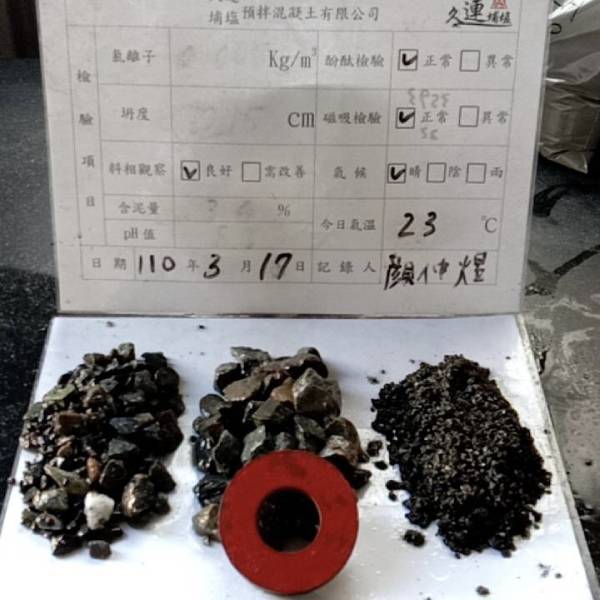 埔塩預拌混凝土有限公司 久運埔塩
氯離子 Kg/m³ 酚酞檢驗 正常 異常
坍度 cm 磁吸檢驗 正常 異常
檢驗項目
粒料相觀察 良好 需改善 氣候 晴 陰 雨
含泥量 % 今日氣溫 23 ℃
pH值
日期 110 年 3 月 17 日 記錄人 顏仲煜